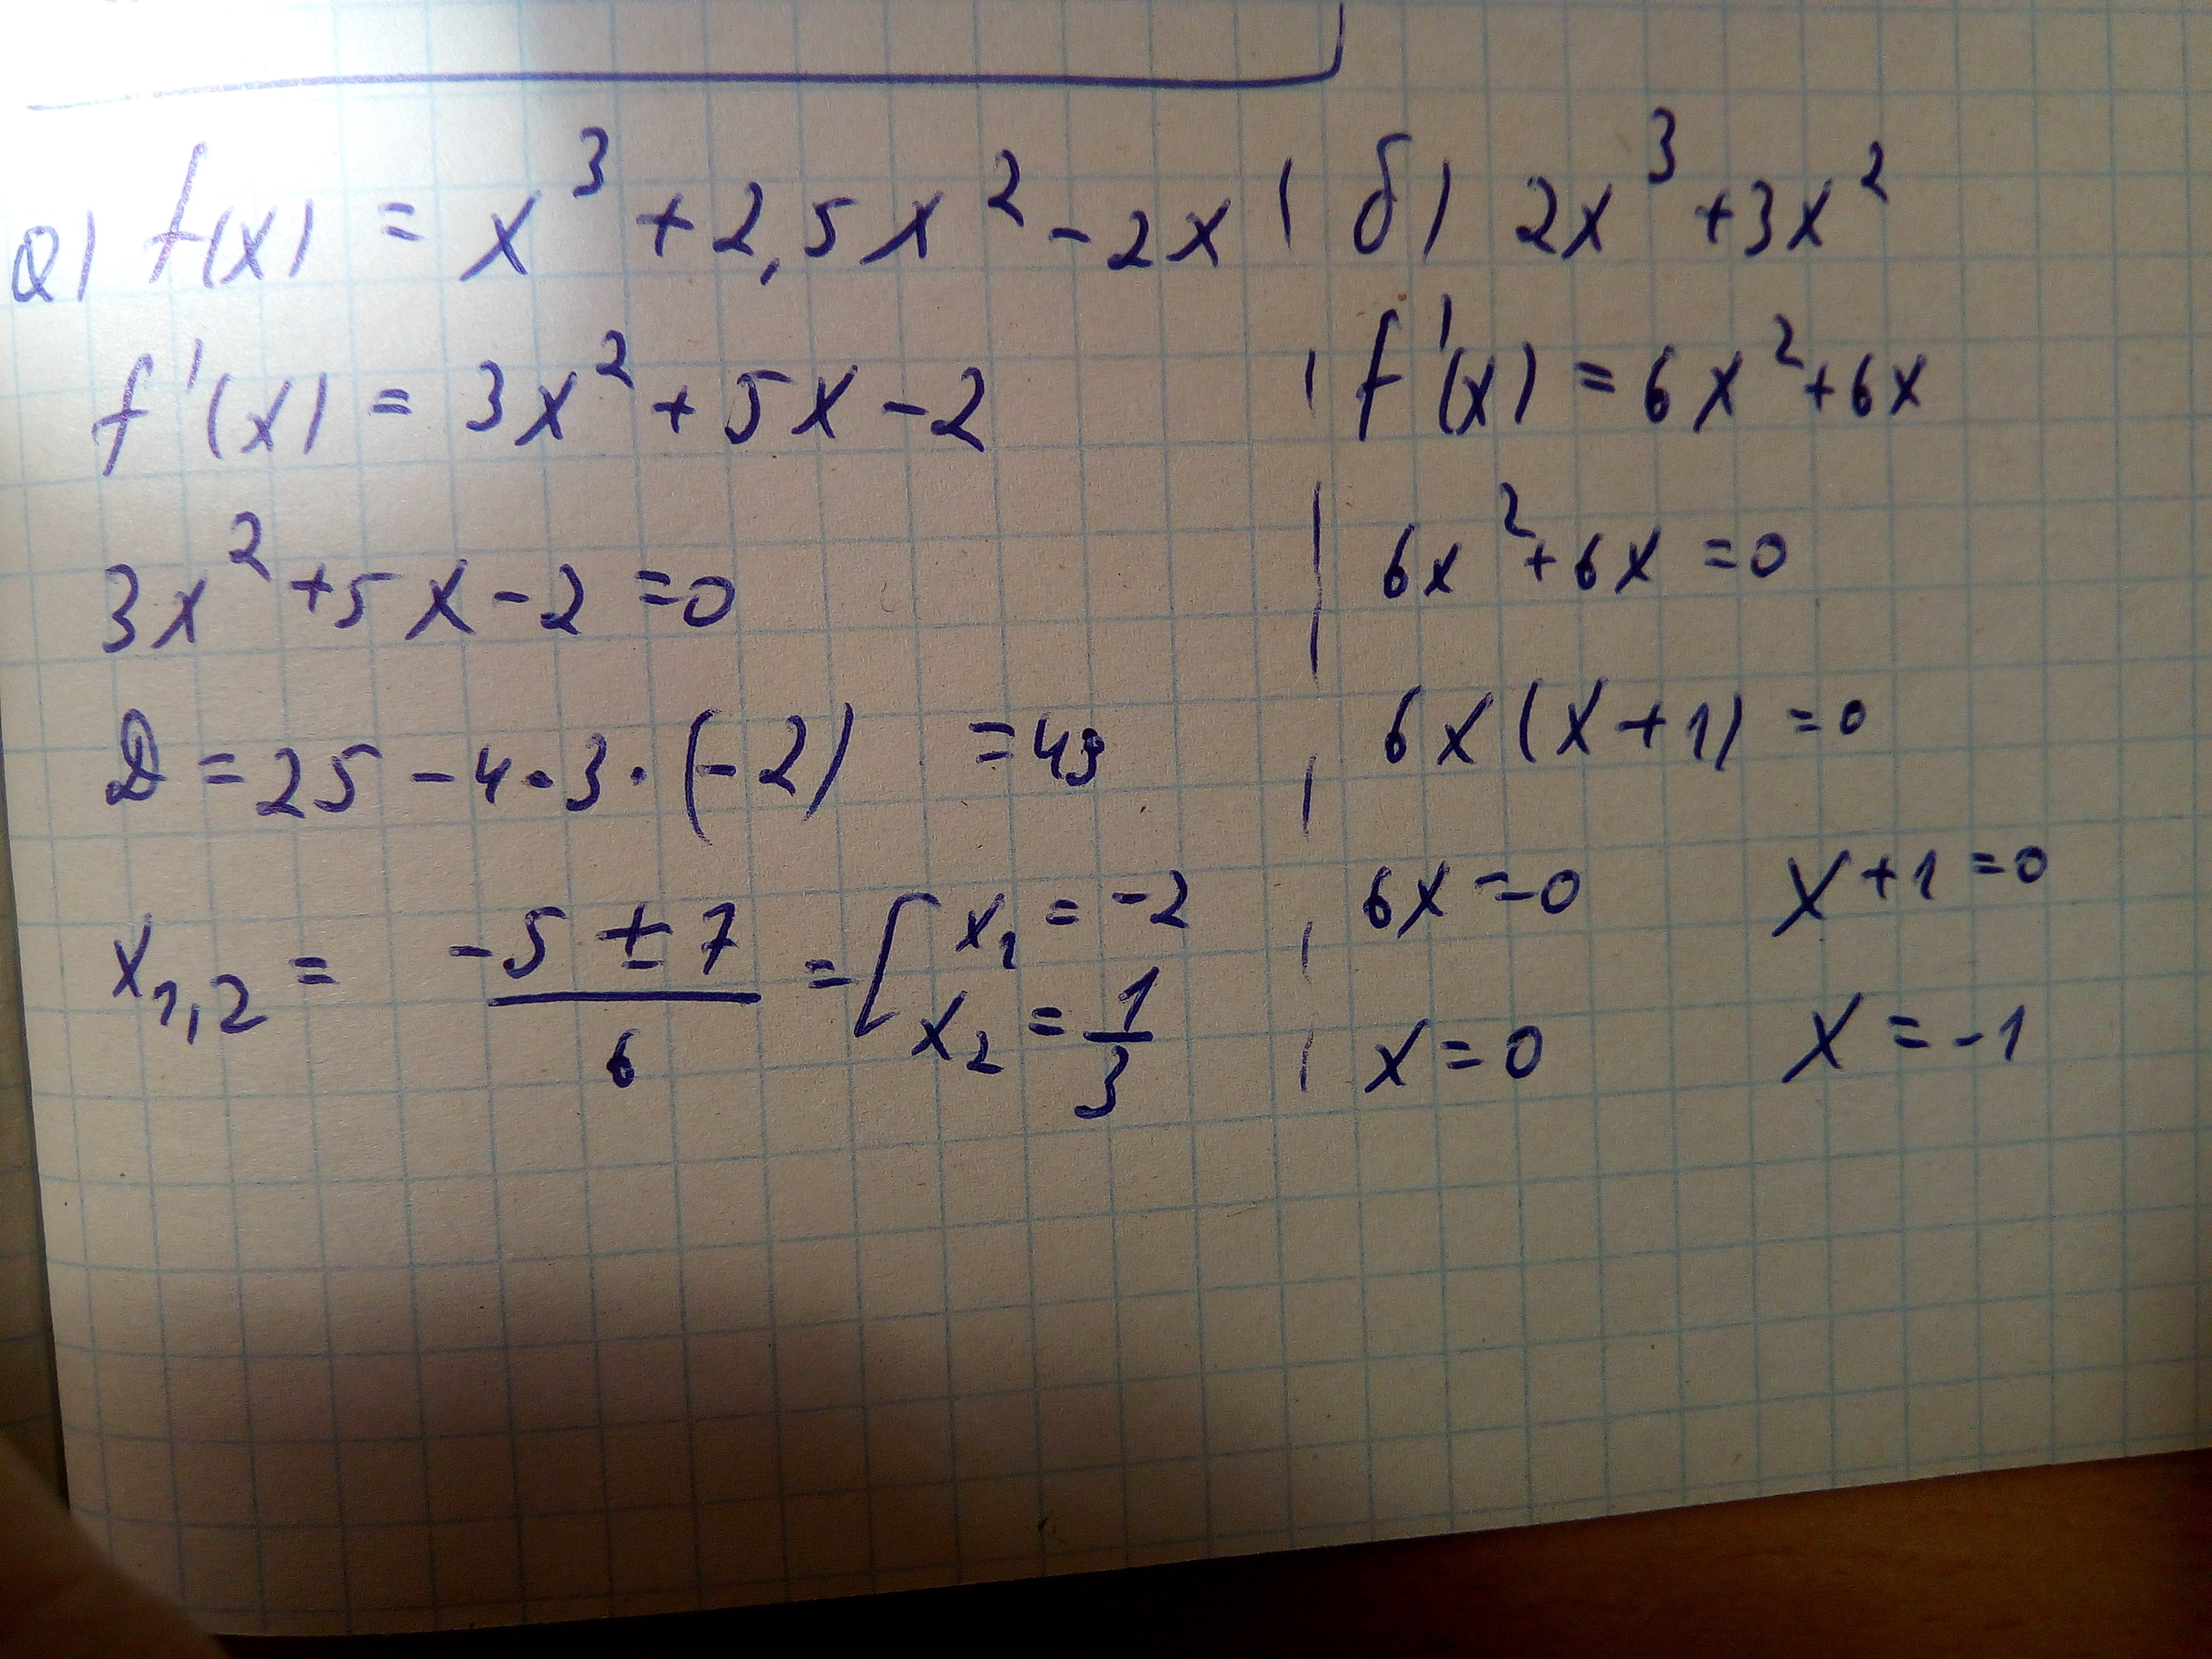 а) f(x) = x³ + 2,5x² - 2x
f'(x) = 3x² + 5x - 2
3x² + 5x - 2 = 0
D = 25 - 4·3·(-2) = 49
x₁,₂ = (-5 ± 7)/6 = [ x₁ = -2
x₂ = 1/3
б) 2x³ + 3x²
f'(x) = 6x² + 6x
6x² + 6x = 0
6x(x + 1) = 0
6x = 0 x + 1 = 0
x = 0 x = -1